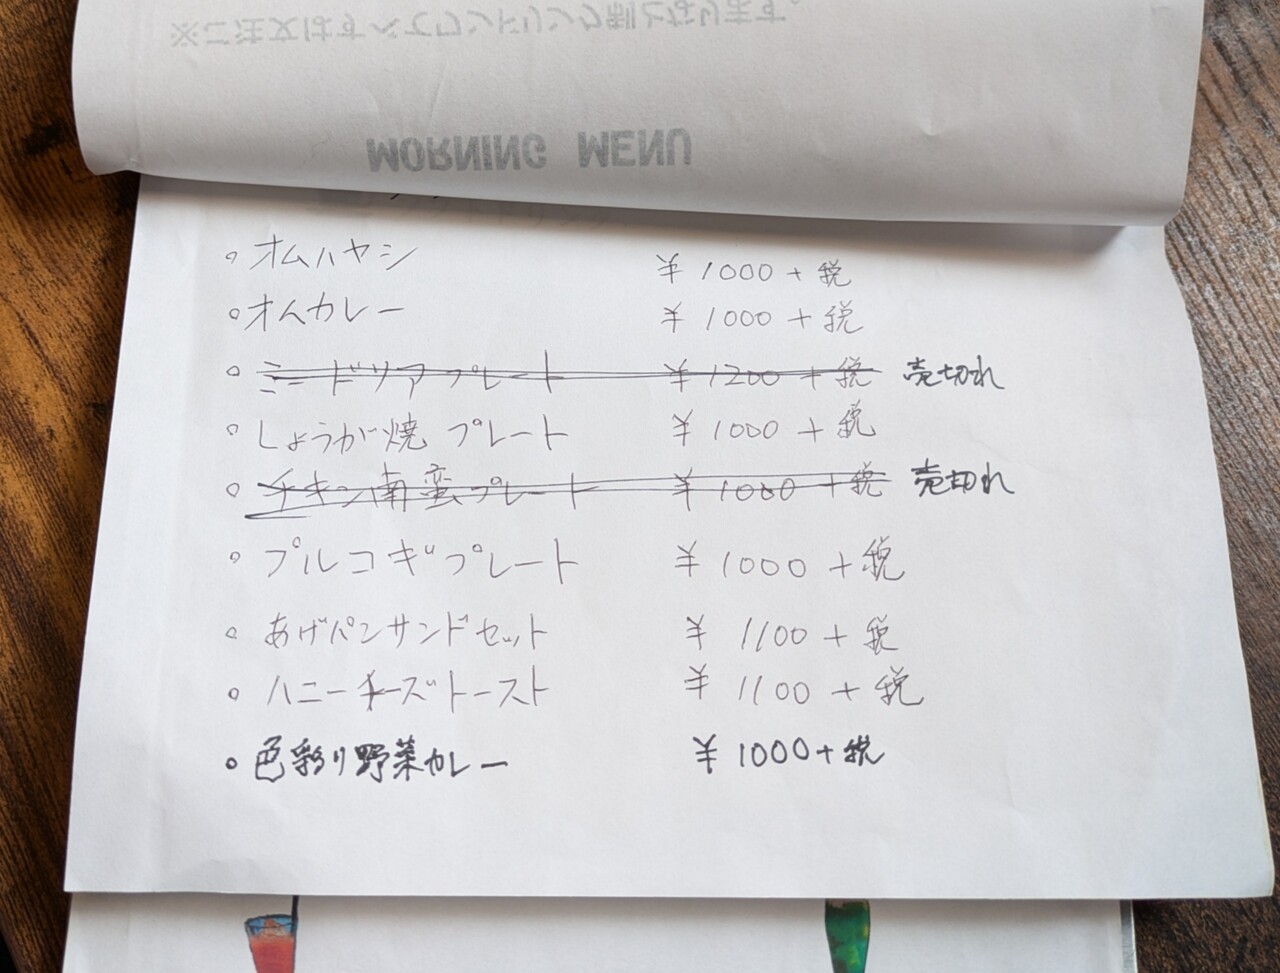 ※ご注文はすべてワンドリンク制となります。
MORNING MENU
・オムハヤシ ¥1000+税
・オムカレー ¥1000+税
・ミートドリアプレート ¥1200+税 売切れ
・しょうが焼プレート ¥1000+税
・チキン南蛮プレート ¥1000+税 売切れ
・プルコギプレート ¥1000+税
・あげパンサンドセット ¥1100+税
・ハニーチーズトースト ¥1100+税
・色彩り野菜カレー ¥1000+税